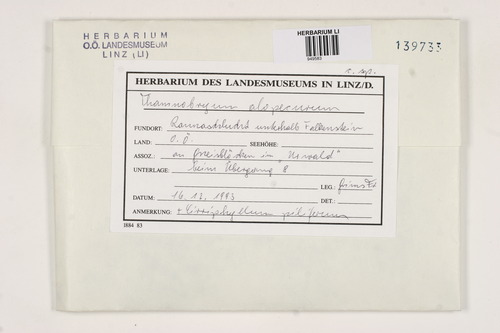 HERBARIUM
O.Ö. LANDESMUSEUM
LINZ (LI)
HERBARIUM LI
139733
c. sp.
HERBARIUM DES LANDESMUSEUMS IN LINZ/D.
Thamnobryum alopecurum
FUNDORT: Rannaschlucht unterhalb Falkenstein
LAND: O.Ö. SEEHÖHE:
ASSOZ.: an Gneisblöcken im "Urwald"
UNTERLAGE: beim Übergang 8
LEG.: Grims F.
DATUM: 16.12.1993 DET.:
ANMERKUNG: + Cirriphyllum piliferum
I884 83